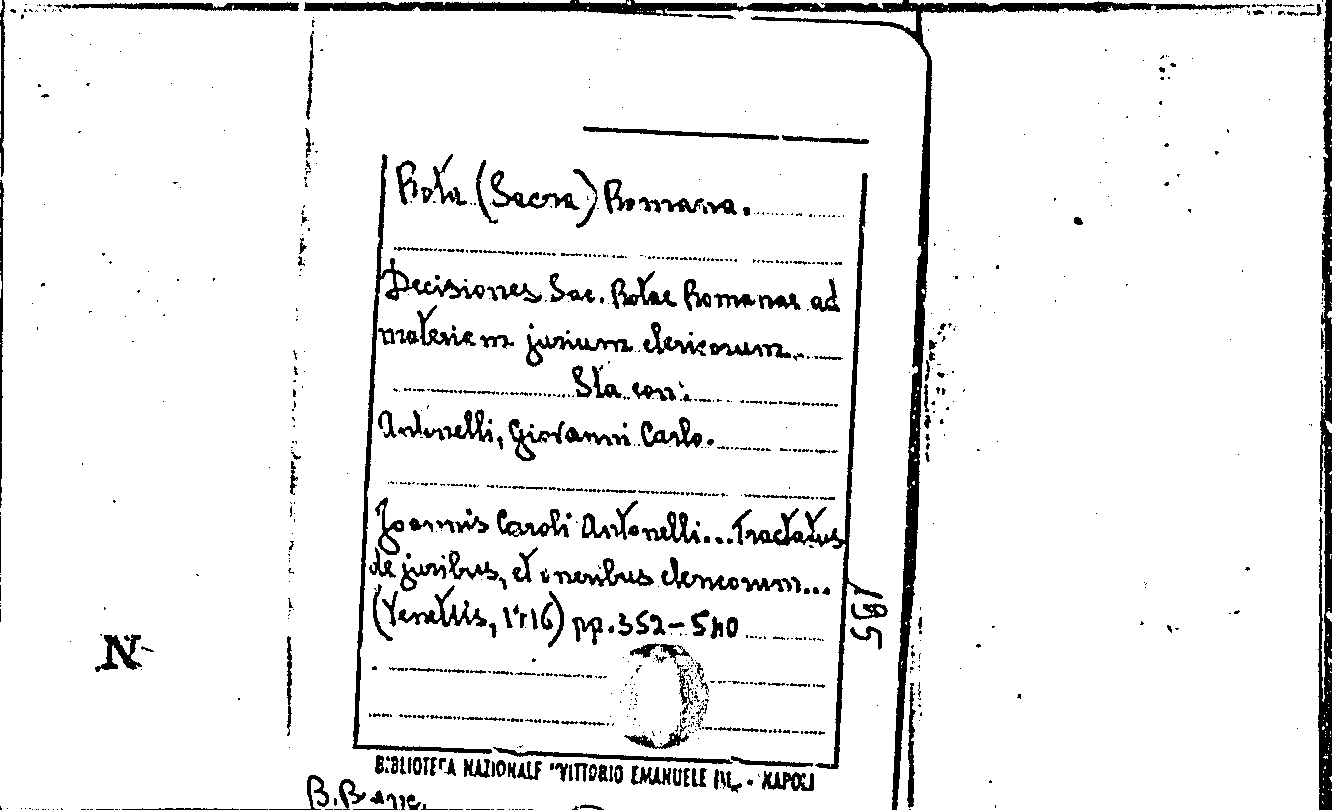 Rota (Sacra) Romana.
Decisiones Sac. Rotae Romanae ad
materiem jurium clericorum.
Sta con:
Antonelli, Giovanni Carlo.
Joannis Caroli Antonelli... Tractatus
de juribus, et oneribus clericorum...
(Venetiis, 1716) pp. 352-540
195
N
BIBLIOTECA NAZIONALE "VITTORIO EMANUELE III" - NAPOLI